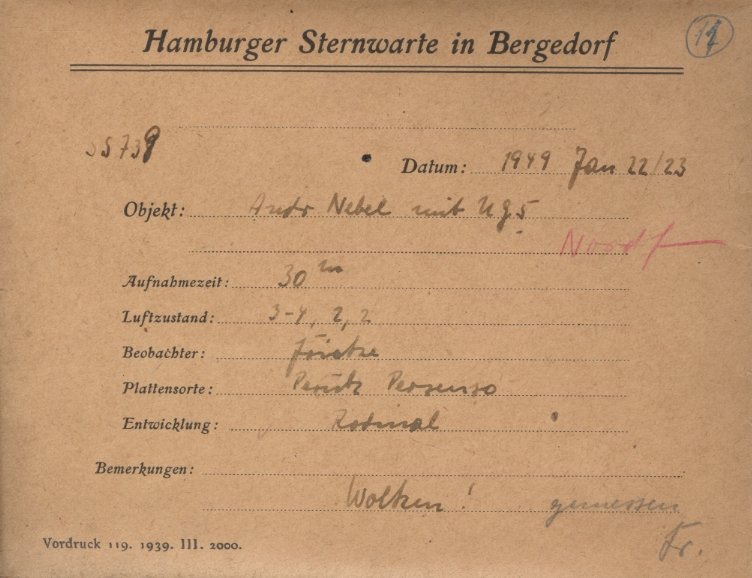 Hamburger Sternwarte in Bergedorf
SS739
Datum: 1949 Jan 22/23
Objekt: Andr Nebel mit UG5
Aufnahmezeit: 30 m
Luftzustand: 3-4, 2, 2
Beobachter:
Plattensorte: Perutz Persenso
Entwicklung: Rodinal
Bemerkungen:
Wolken! gemessen
Fr.
Vordruck 119. 1939. III. 2000.